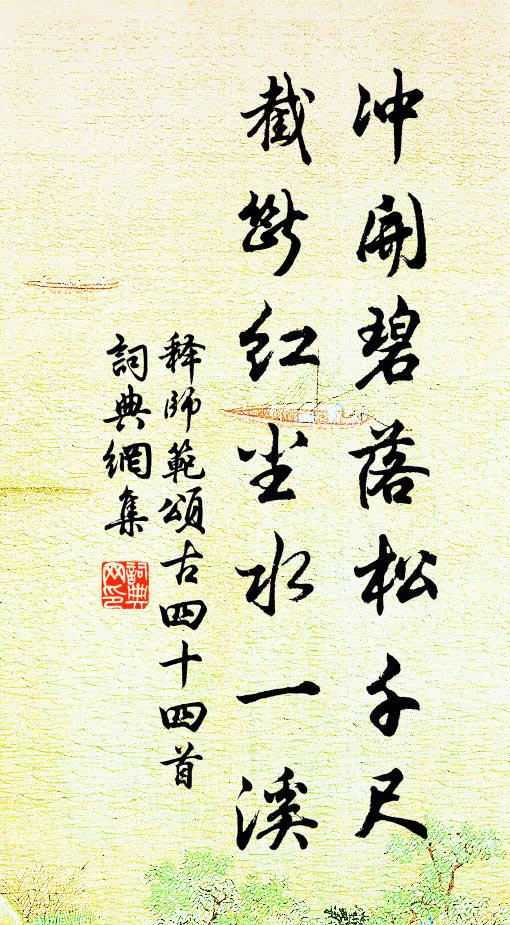 冲開碧落松千尺
截斷紅尘水一溪
释師範頌古四十四首
詞典網集
詞典网印